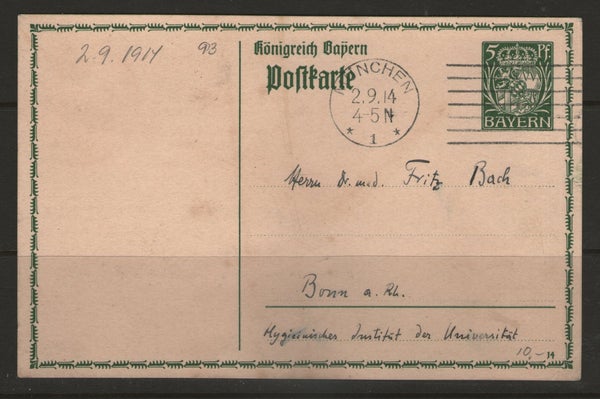 2.9.1914 93
Königreich Bayern
Postkarte
MÜNCHEN
2.9.14
4-5N
* 1 *
5 PF
BAYERN
Herrn Dr. med. Fritz Bach
Bonn a. Rh.
Hygienisches Institut der Universität
10,-
14